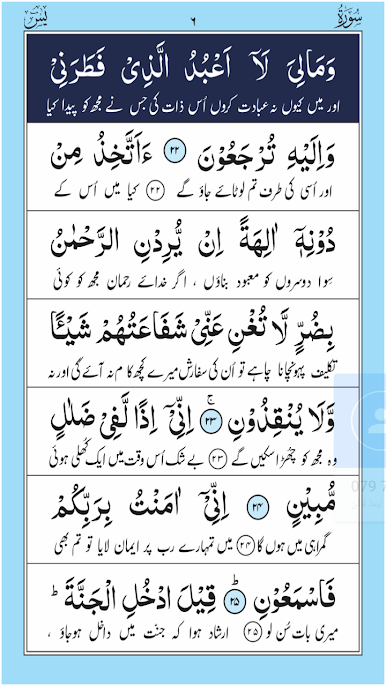 سُوْرَةُ ٦ يٰسٓ
وَمَا لِیَ لَاۤ اَعْبُدُ الَّذِیْ فَطَرَنِیْ
اور میں کیوں نہ عبادت کروں اُس ذات کی جس نے مجھ کو پیدا کیا
وَاِلَیْهِ تُرْجَعُوْنَ ۲۲ ءَاَتَّخِذُ مِنْ
اور اُسی کی طرف تم لوٹائے جاؤ گے ۲۲ کیا میں اُس کے
دُوْنِهٖۤ اٰلِهَةً اِنْ یُّرِدْنِ الرَّحْمٰنُ
سِوا دوسروں کو معبود بناؤں ، اگر خدائے رحمان مجھ کو کوئی
بِضُرٍّ لَّا تُغْنِ عَنِّیْ شَفَاعَتُهُمْ شَیْـًٔا
تکلیف پہونچانا چاہے تو اُن کی سفارش میرے کچھ کام نہ آئے گی اور نہ
وَّلَا یُنْقِذُوْنِ ۚ ۲۳ اِنِّیْۤ اِذًا لَّفِیْ ضَلٰلٍ
وہ مجھ کو چھڑا سکیں گے ۲۳ بے شک اُس وقت میں ایک کُھلی ہوئی
مُّبِیْنٍ ۲۴ اِنِّیْۤ اٰمَنْتُ بِرَبِّكُمْ
گمراہی میں ہوں گا ۲۴ میں تمہارے رب پر ایمان لایا تو تم بھی
فَاسْمَعُوْنِ ؕ ۲۵ قِیْلَ ادْخُلِ الْجَنَّةَ ؕ
میری بات سُن لو ۲۵ ارشاد ہوا کہ جنّت میں داخل ہوجاؤ ،
079 7